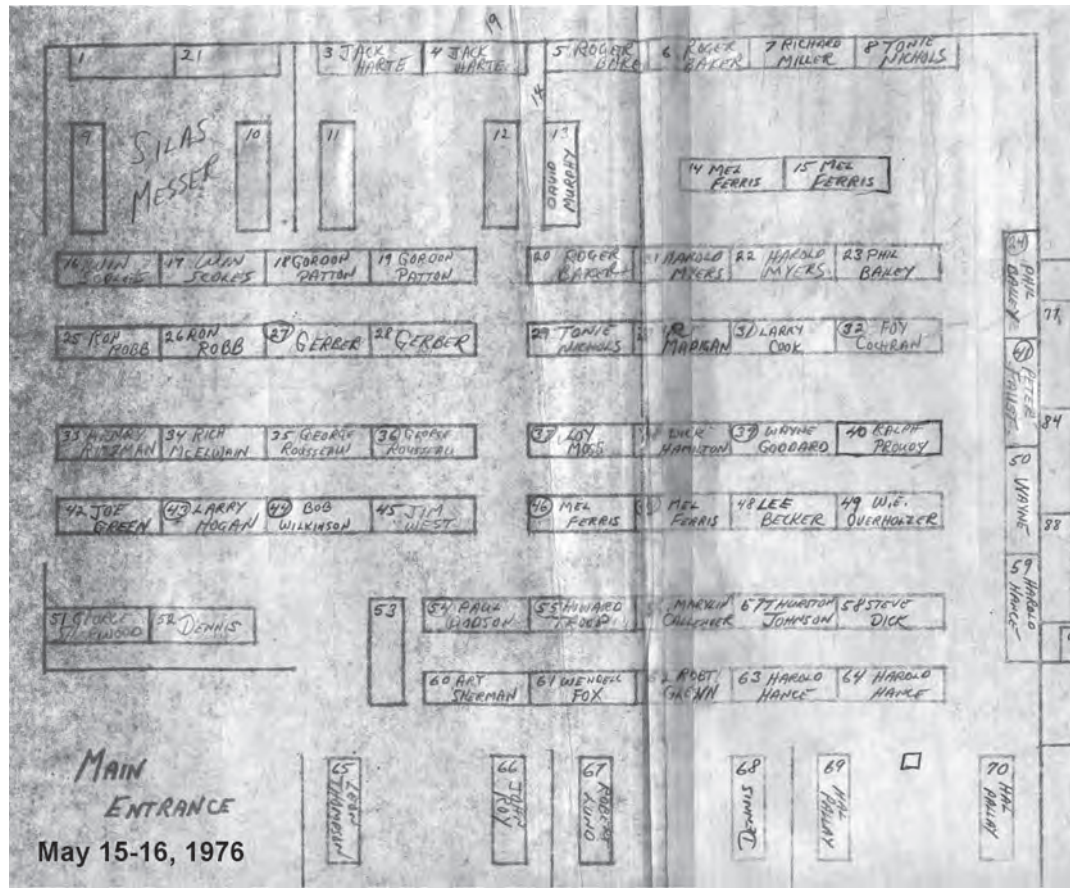 19
1
21
3 JACK HARTE
4 JACK HARTE
5 ROGER BAKE
6 ROGER BAKER
7 RICHARD MILLER
8 TONIE NICHOLS
14
9
SILAS MESSER
10
11
12
13 DAVID MURPHY
14 MEL FERRIS
15 MEL FERRIS
16 WIN SCOLES
17 WIN SCOLES
18 GORDON PATTON
19 GORDON PATTON
20 ROGER BAKER
21 HAROLD MYERS
22 HAROLD MYERS
23 PHIL BAILEY
24 PHIL BAILEY
25 RON ROBB
26 RON ROBB
27 GERBER
28 GERBER
29 TONIE NICHOLS
MADIGAN
31 LARRY COOK
32 FOY COCHRAN
41 PETER FAUST
33 HENRY RITZMAN
34 RICH McELWAIN
35 GEORGE ROUSSEAU
36 GEORGE ROUSSEAU
37 JOY MOSS
DICK HAMILTON
39 WAYNE GODDARD
40 RALPH PROUDY
84
42 JOE GREEN
43 LARRY HOGAN
44 BOB WILKINSON
45 JIM WEST
46 MEL FERRIS
MEL FERRIS
48 LEE BECKER
49 W.E. OVERHOLZER
50 WAYNE
88
51 GEORGE
52 DENNIS
53
54 PAUL DODSON
55 HOWARD TROOP
MARYLIN CALLENDER
57 THURSTON JOHNSON
58 STEVE DICK
59 HAROLD HANCE
60 ART SHERMAN
61 WENDELL FOX
62 ROBT GRENN
63 HAROLD HANCE
64 HAROLD HANCE
MAIN
ENTRANCE
65 LEON THOMPSON
66 JOHN ROY
67 ROBERT KING
68 DENNIS
69 HAL PALLAY
70 HAL PALLAY
May 15-16, 1976